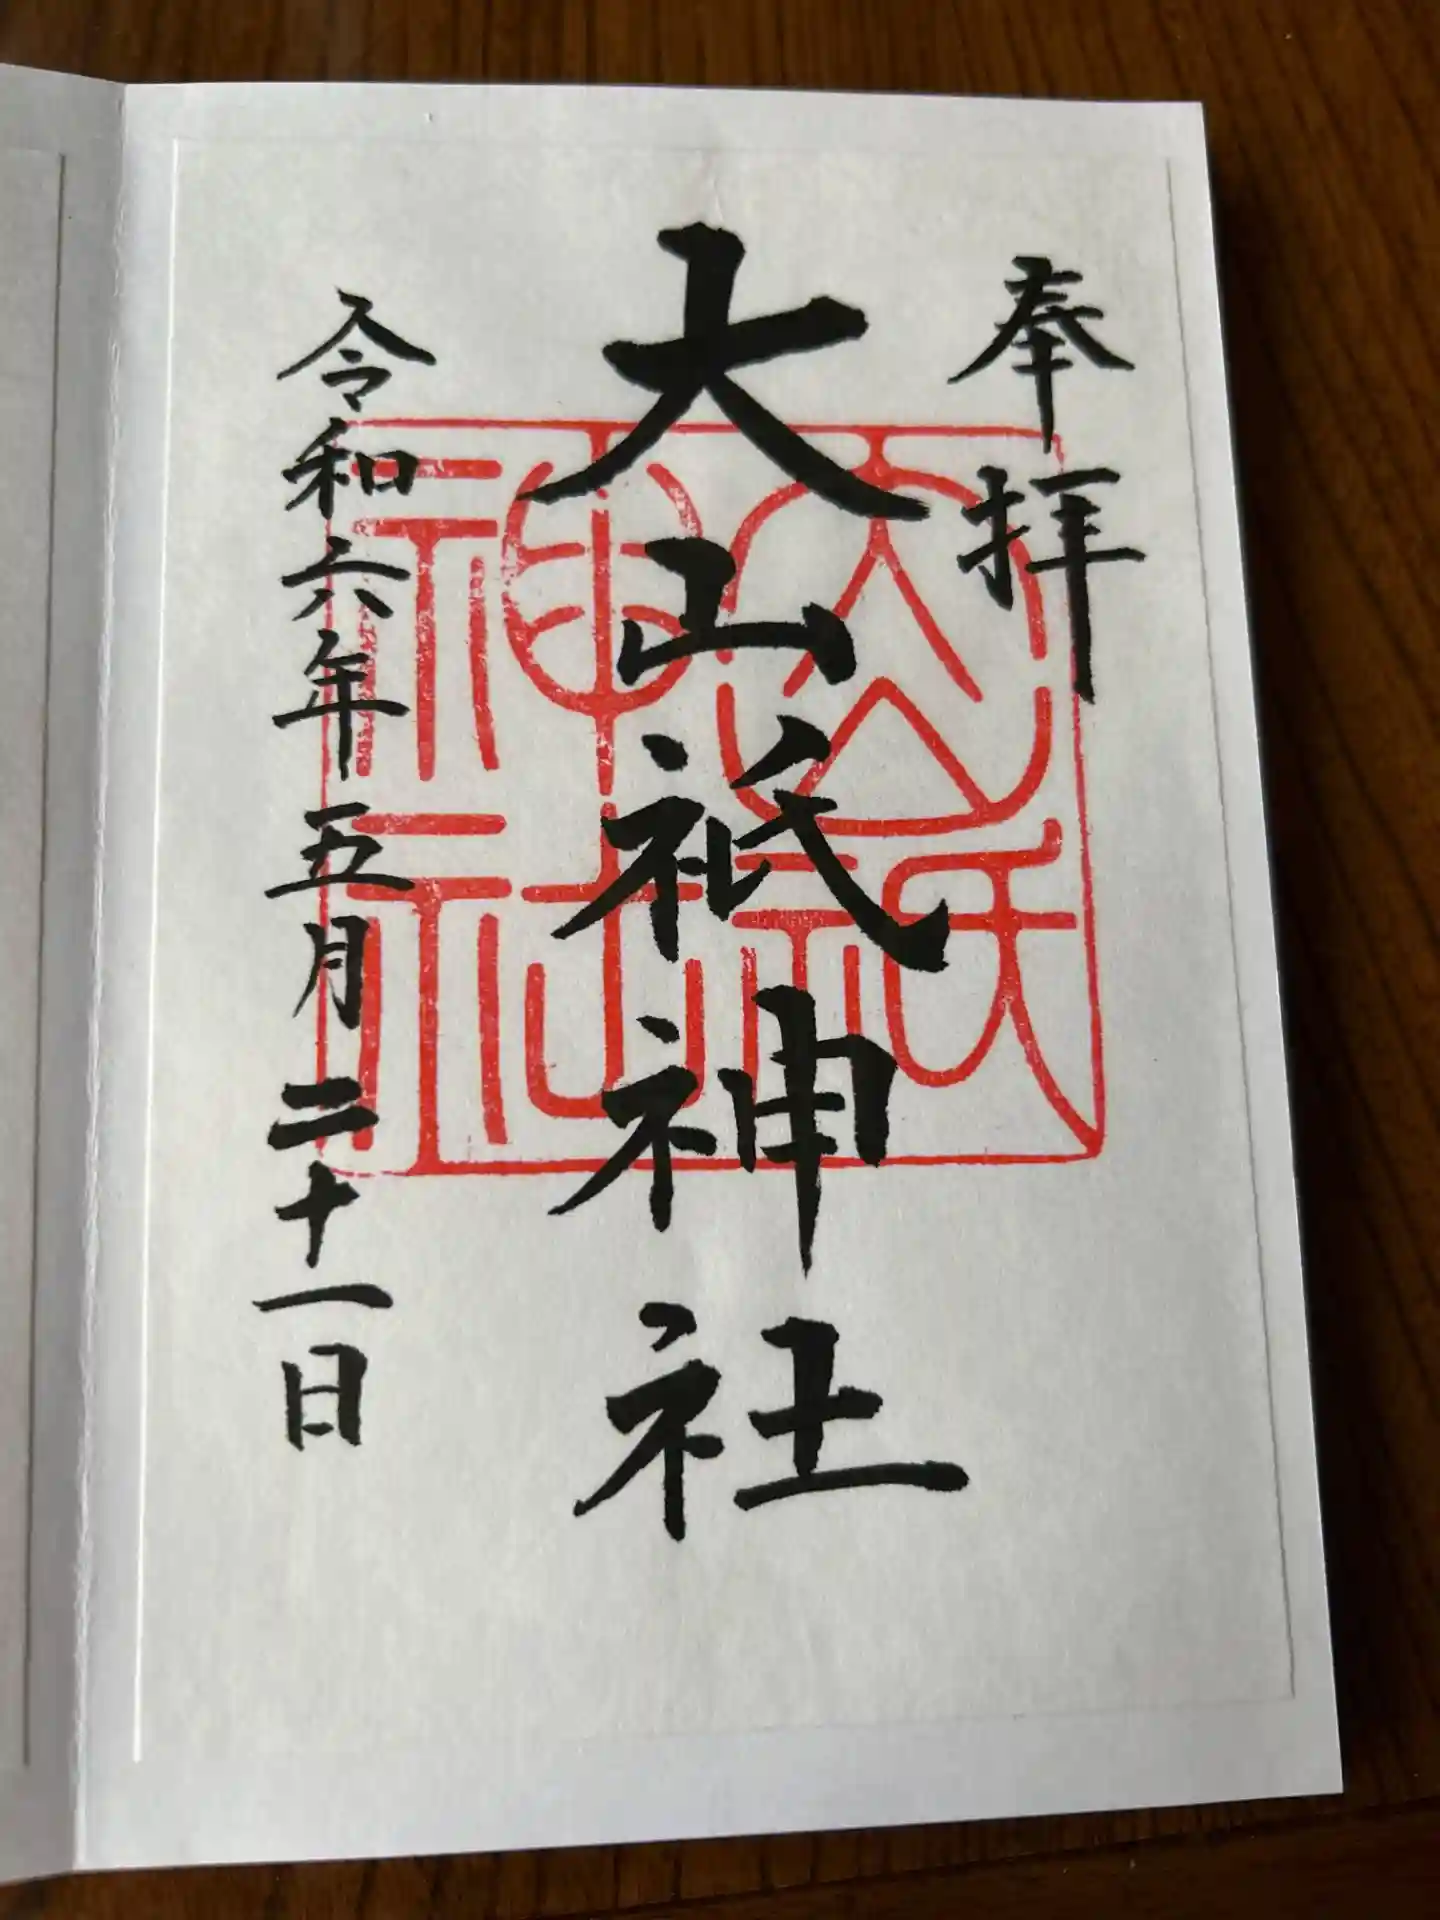 奉拝
大山祇神社
令和六年五月二十一日
大山祇神社